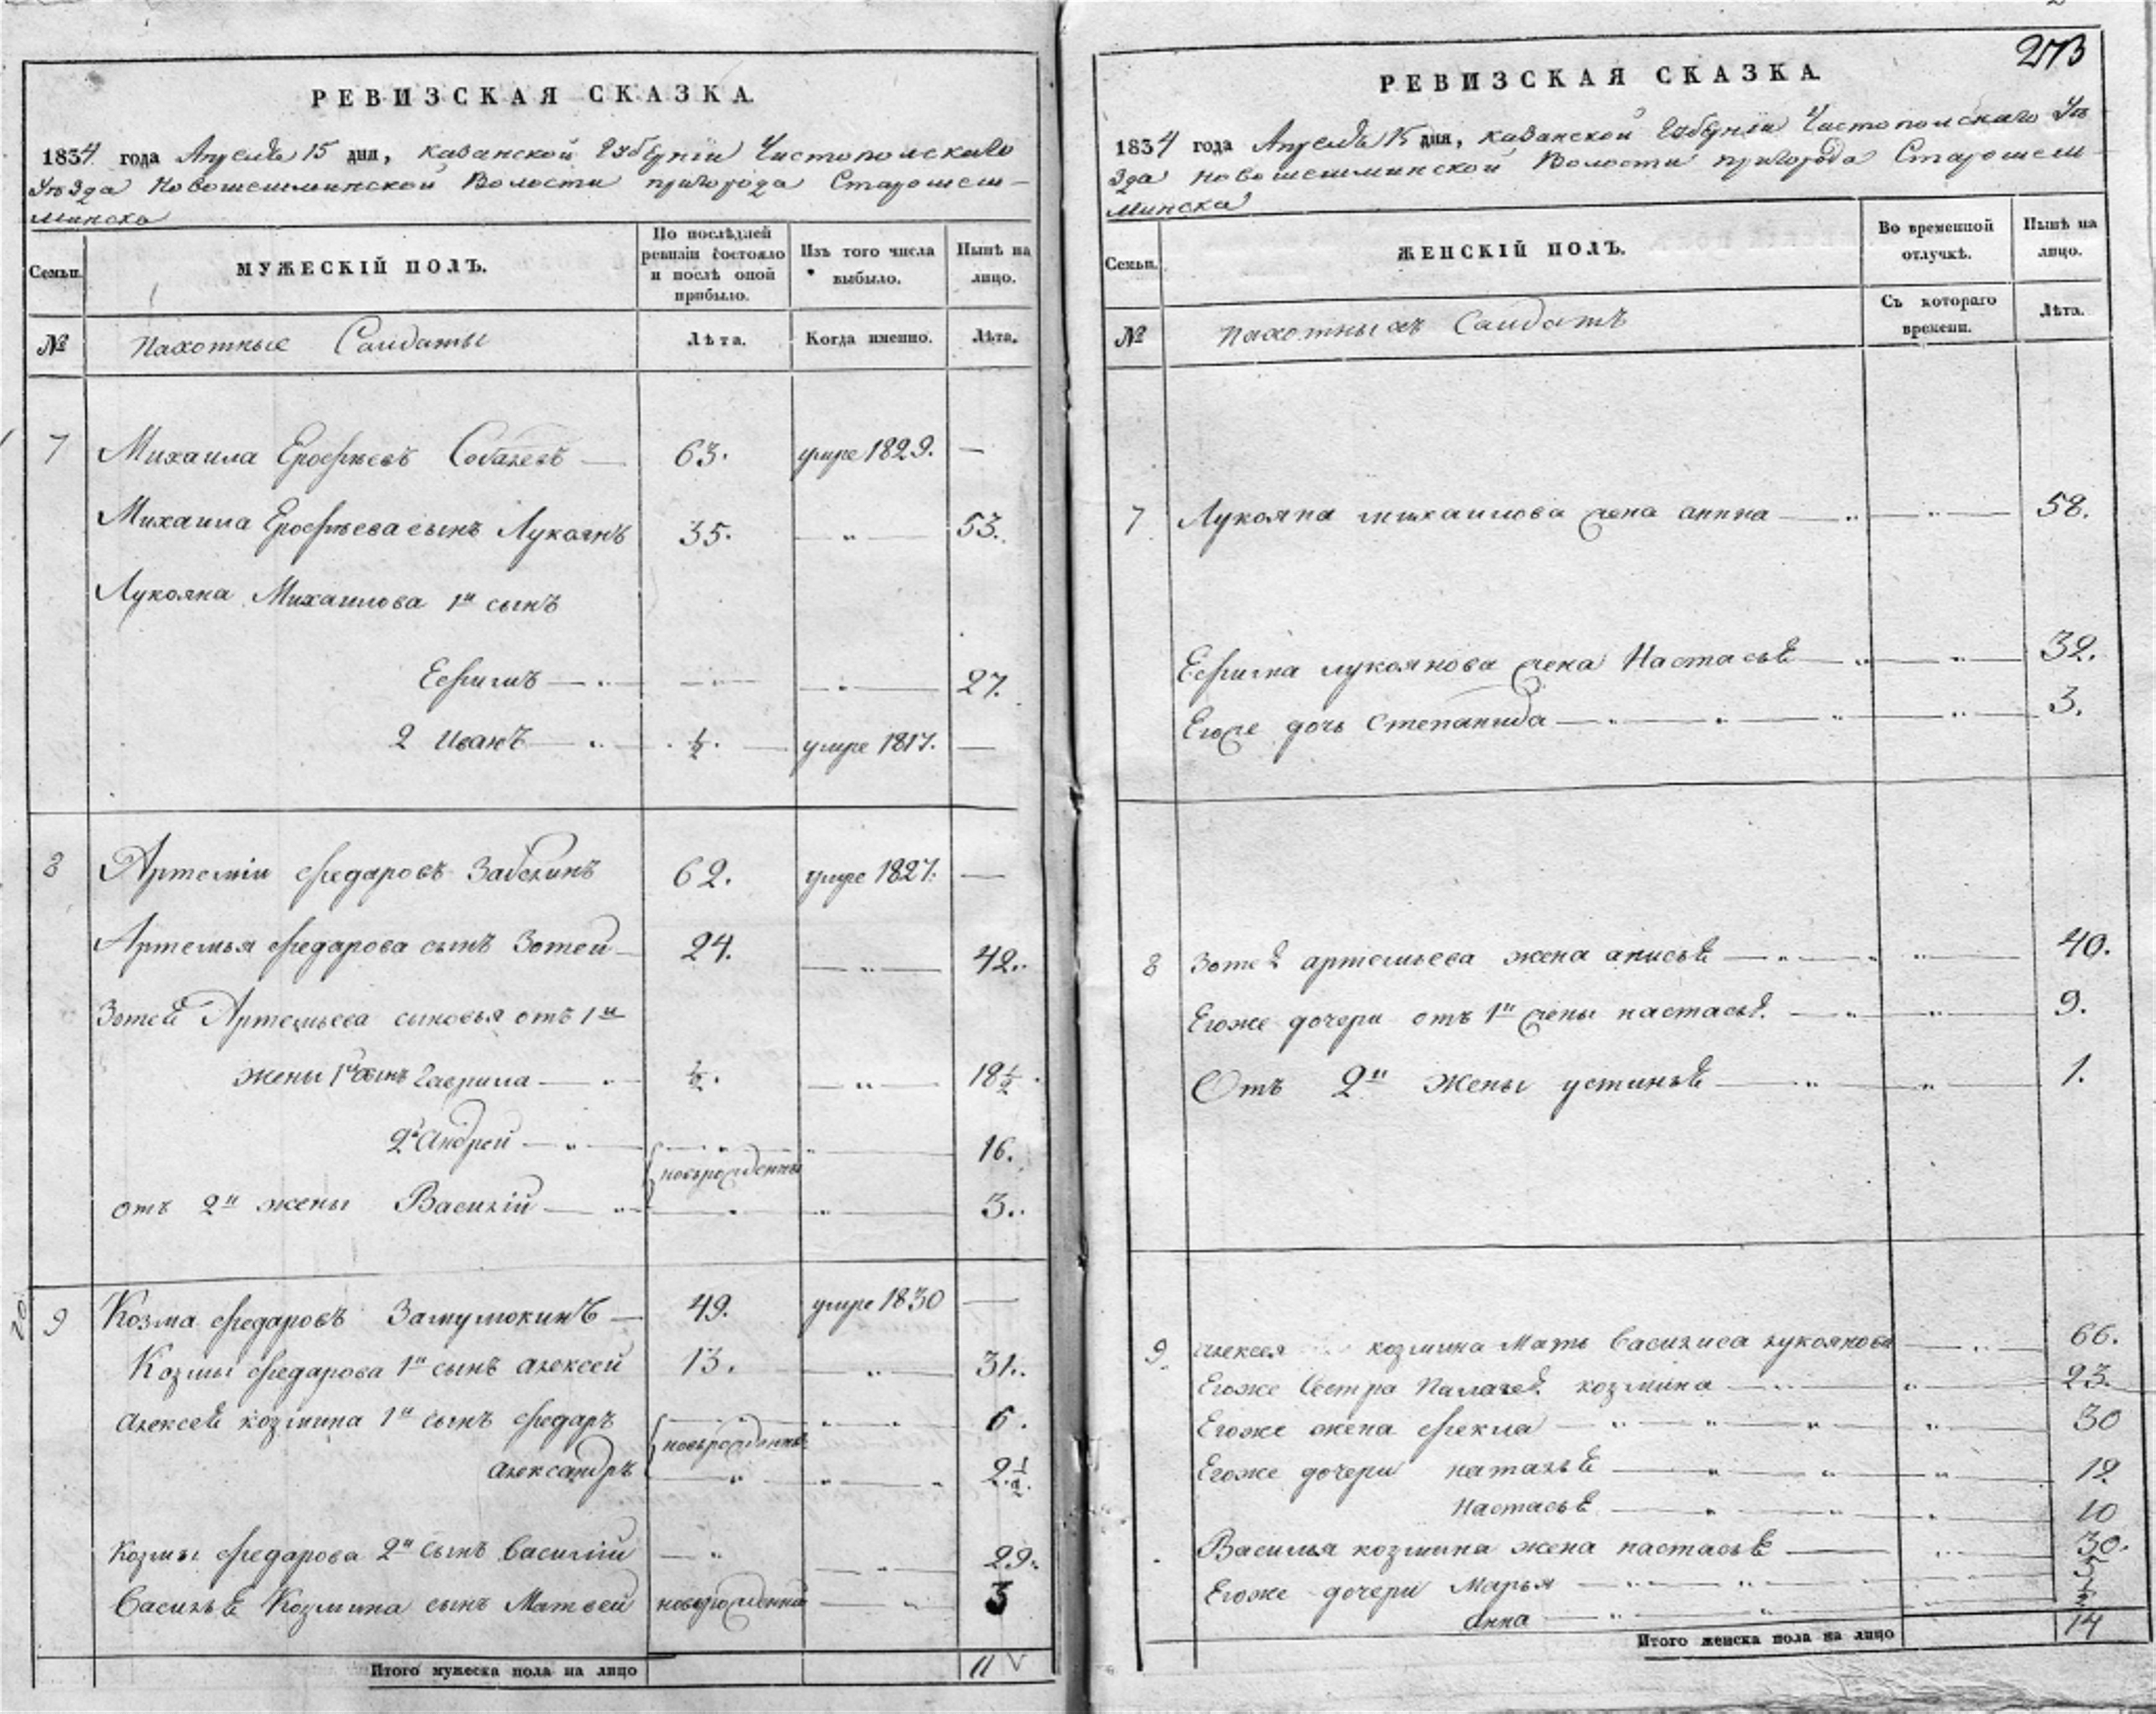 РЕВИЗСКАЯ СКАЗКА.
1834 года Апреля 15 дня, казанской Губернiи Чистопольскаго
Уезда Новошешминской Волости пригорода Старошеш-
минска
Семьи.
МУЖЕСКІЙ ПОЛЪ.
По послѣдней ревизіи состояло и послѣ оной прибыло.
Изъ того числа выбыло.
Нынѣ на лицо.
№ Пахотные Салдаты Лѣта. Когда именно. Лѣта.
7 Михаила Ерофѣевъ 63. умре 1829. —
Михаила Ерофѣева сынъ Лукоянъ 35. — „ — 53.
Лукояна Михаилова 1й сынъ
Ефимъ — „ — — „ — — „ — 27.
2 Иванъ — „ — ½. — умре 1817. —
8 Артемiи федаровъ Забелинъ 62. умре 1827. —
Артемья федарова сынъ Зотей 24. — „ — 42.
Зотеѣ Артемьева сыновья отъ 1й
жены 1й сынъ Гаврила — „ ½. — „ — 18½.
2й Андрей — „ — новорожденны 16.
отъ 2й жены Василiй — „ — „ — 3.
9 Козма федаровъ — 49. умре 1830 —
Козмы федарова 1й сынъ алексей 13. — „ — 31.
алексеѣ козмина 1й сынъ федаръ новорожденны 6.
александръ — „ — „ — „ 2.½.
Козмы федарова 2й сынъ василiй — „ — „ — 29.
васильѣ Козмина сынъ Матвей новорожденный — „ 3
Итого мужеска пола на лицо 11
273
РЕВИЗСКАЯ СКАЗКА.
1834 года Апреля 15 дня, казанской Губернiи Чистопольскаго Уе
зда новошешминской Волости пригорода Старошеш-
минска
Семьи.
ЖЕНСКІЙ ПОЛЪ.
Во временной отлучкѣ.
Нынѣ на лицо.
№ Пахотныхъ Салдатъ Съ котораго времени. Лѣта.
7 Лукояна михаилова жена анна — „ — „ — 58.
Ефима лукоянова жена Настасьѣ — „ — „ — 32.
Егоже дочь Степанида — „ — „ — „ — „ — 3.
8 Зотеѣ артемьева жена анисьѣ — „ — „ — 40.
Егоже дочери отъ 1й жены настасьѣ. — „ — „ — 9.
Отъ 2й жены устиньѣ — „ — „ — 1.
9. алексея козмина Мать василиса лукоянова — „ — 66.
Егоже Сестра Палагеѣ козмина — „ — „ — 23.
Егоже жена фекла — „ — „ — „ — „ — 30
Егоже дочери натальѣ — „ — „ — „ — 12
Настасьѣ — „ — „ — „ — 10
Василья козмина жена настасьѣ — „ — 30.
Егоже дочери Марья — „ — „ — „ — 5
анна — „ — „ — „ —
Итого женска пола на лицо 14